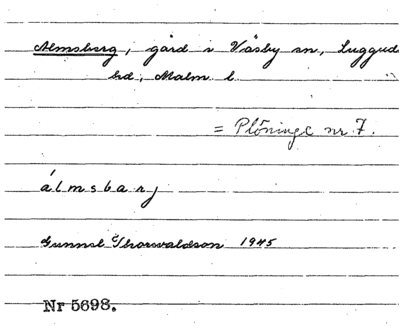 Almsberg, gård i Väsby sn, Luggude
hd, Malm. l.
= Plöninge nr 7.
álmsbarj
Gunnel Thorvaldson 1945
Nr 5698.